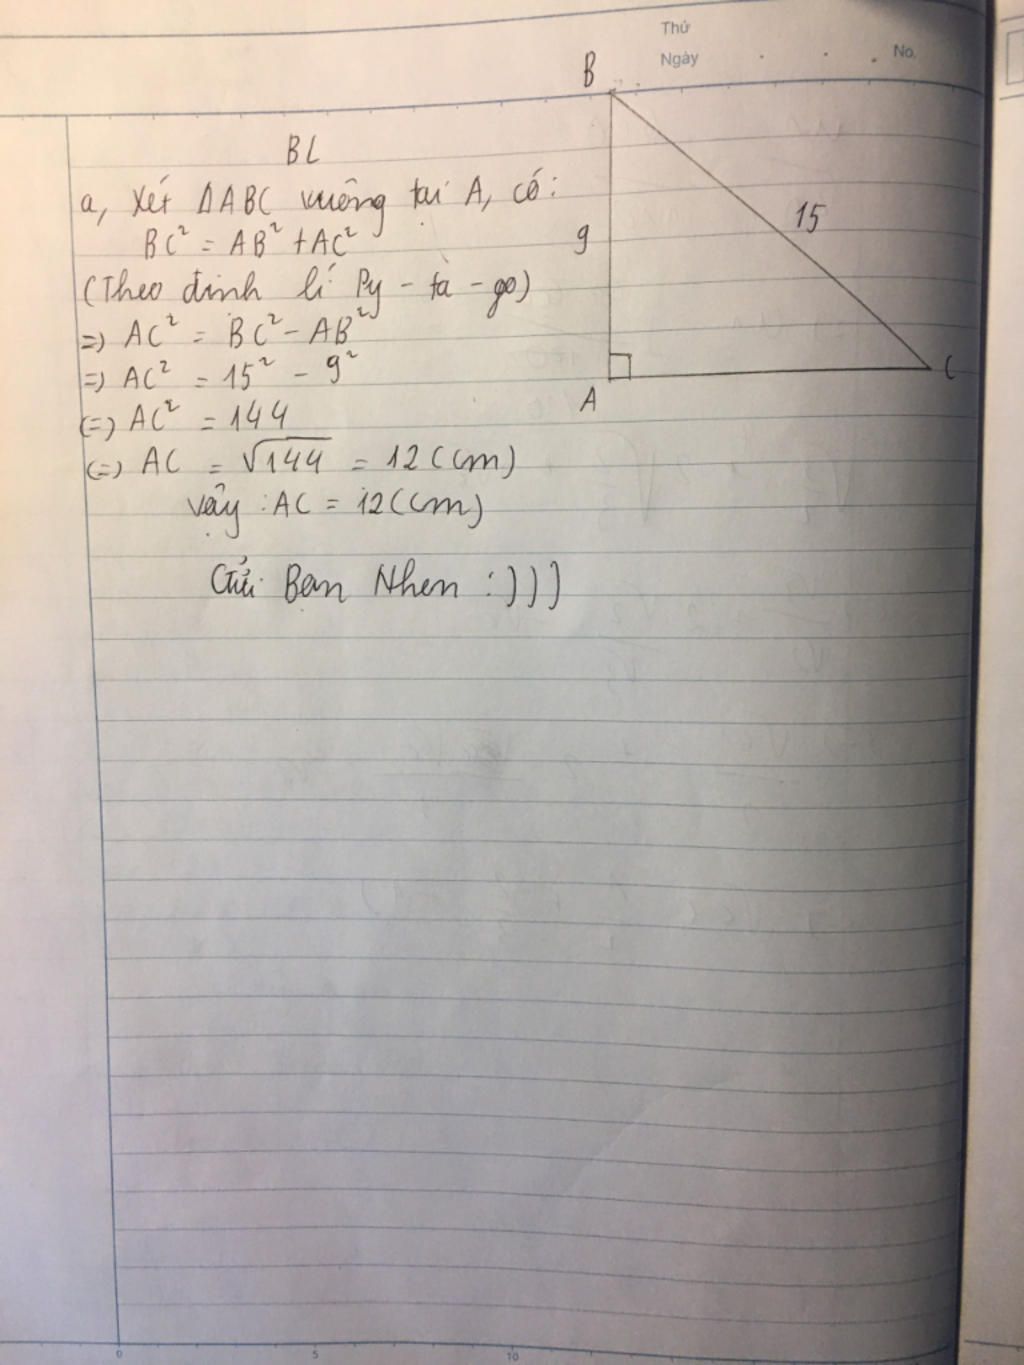 Thứ
Ngày
No.
B
BL
a, Xét ΔABC vuông tại A, có:
BC² = AB² + AC²
(Theo định lí Py - ta - go)
=> AC² = BC² - AB²
=> AC² = 15² - 9²
(=) AC² = 144
(=) AC = √144 = 12 (cm)
vậy : AC = 12 (cm)
Gửi Bạn Nhen :)))
9
15
A
C
0 5 10